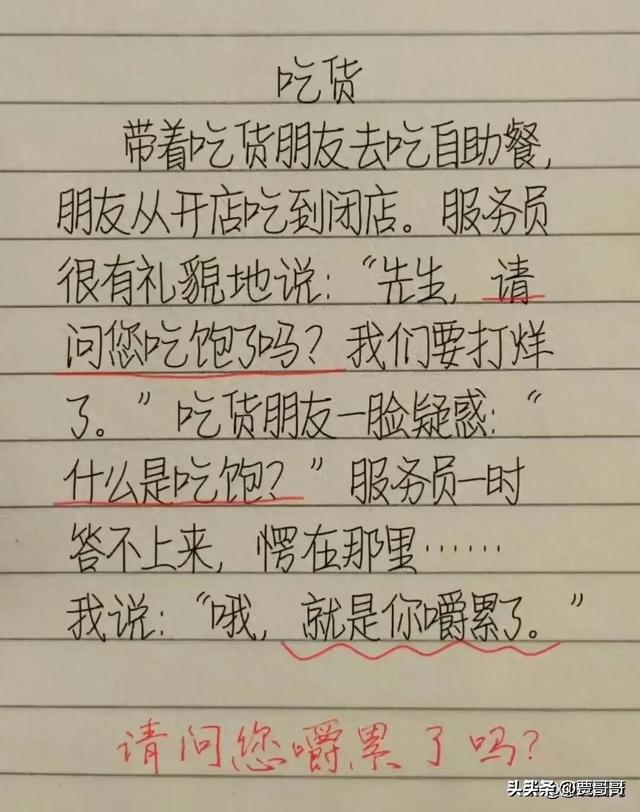 吃货
带着吃货朋友去吃自助餐,
朋友从开店吃到闭店。服务员
很有礼貌地说:“先生,请
问您吃饱了吗?我们要打烊
了。”吃货朋友一脸疑惑:“
什么是吃饱?”服务员一时
答不上来,愣在那里……
我说:“哦,就是你嚼累了。”
请问您嚼累了吗?
头头条@贾哥哥